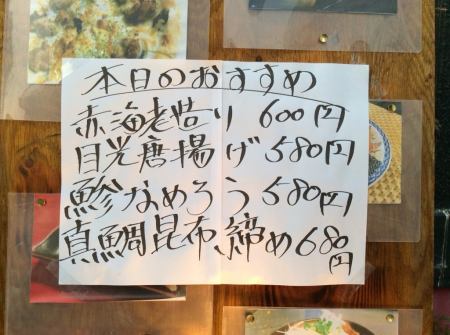 本日のおすすめ
赤海老造り 600円
目光唐揚げ 580円
鯵なめろう 580円
真鯛昆布締め 680円